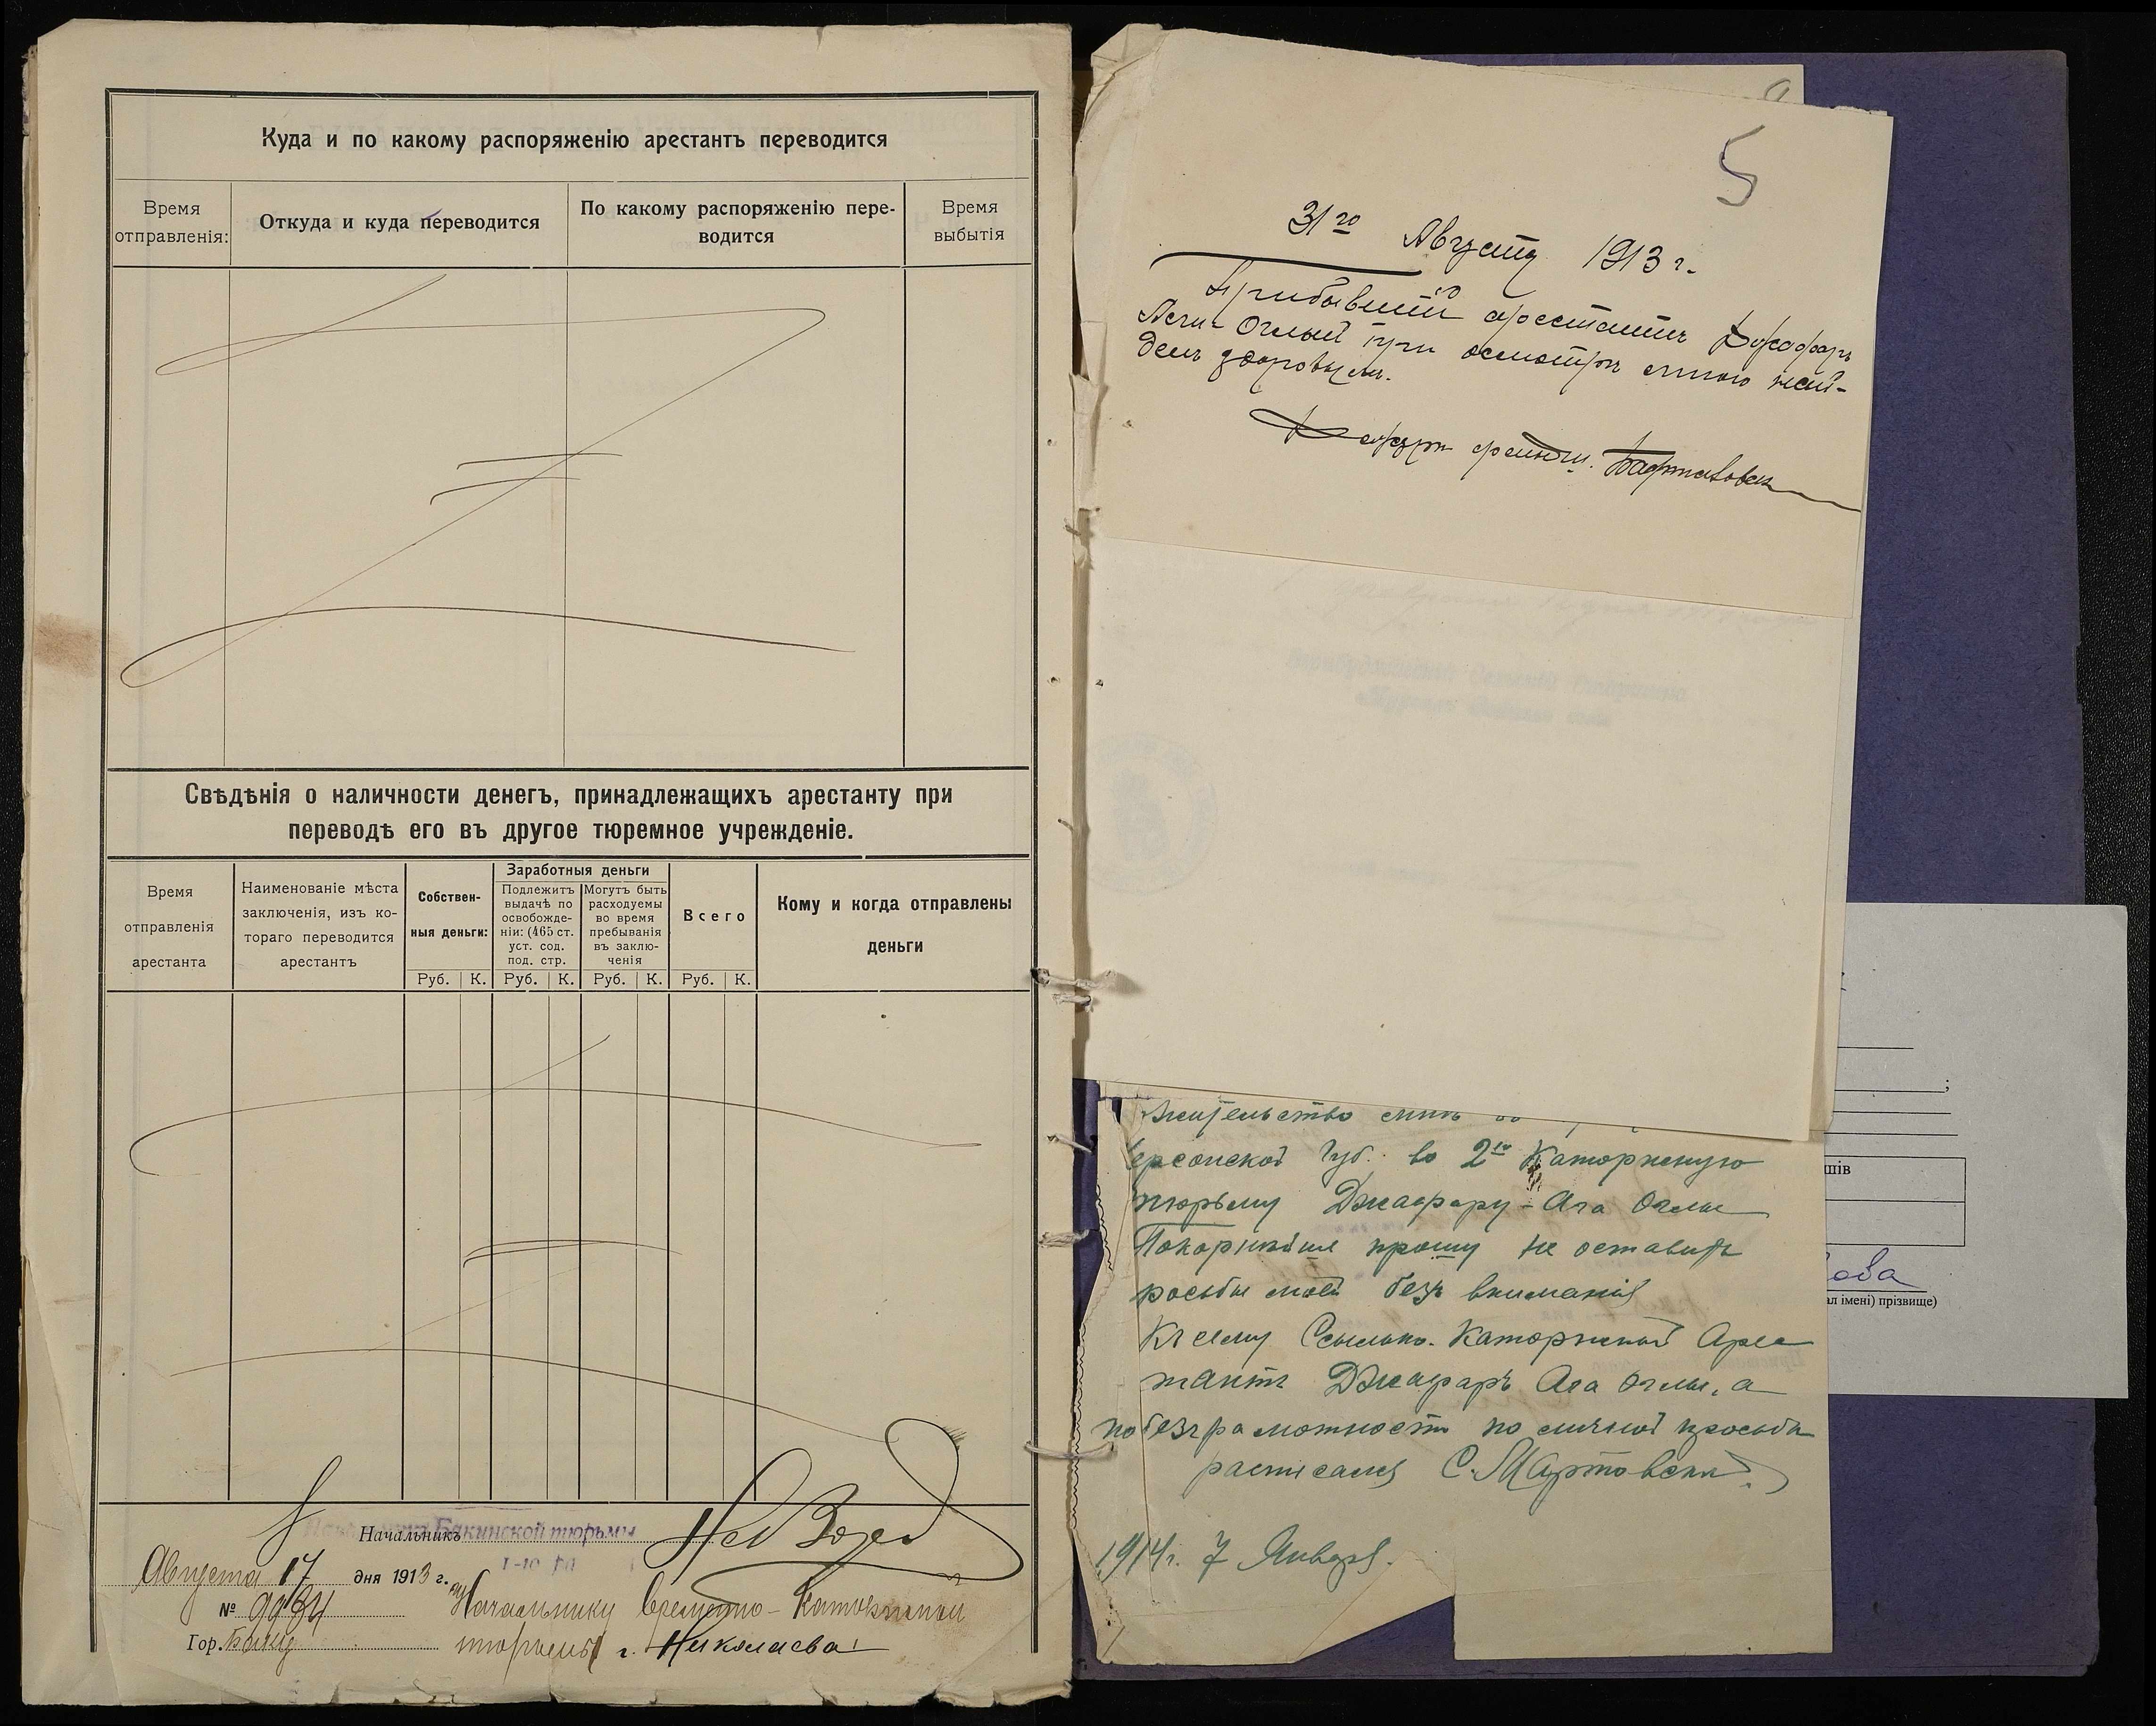 Куда и по какому распоряженію арестантъ переводится
Время отправленія:
Откуда и куда переводится
По какому распоряженію пере-
водится
Время выбытія
Свѣдѣнія о наличности денегъ, принадлежащихъ арестанту при
переводѣ его въ другое тюремное учрежденіе.
Время
отправленія
арестанта
Наименованіе мѣста
заключенія, изъ ко-
тораго переводится
арестантъ
Собствен-
ныя деньги:
Заработныя деньги
Подлежитъ
выдачѣ по
освобожде-
ніи: (465 ст.
уст. сод.
под. стр.
Могутъ быть
расходуемы
во время
пребыванія
въ заклю-
ченія
Всего
Кому и когда отправлены
деньги
Руб. К. Руб. К. Руб. К. Руб. К.
Начальникъ Бакинской тюрьмы
Августа 17 дня 1913 г.
№ 9984
Гор. Баку
Начальнику Временно-Каторжной
тюрьмы г. Николаева
5
31го Августа 1913 г.
Прибывшій арестантъ Джафаръ
Ага Оглы при осмотрѣ мною най-
денъ здоровымъ.
жительство
ерсонской Губ. во 2ю Каторжную
тюрьму Джафару-Ага Оглы
Покорнѣйше прошу не оставить
росьбы моей безъ вниманія
Къ сему Ссыльно-Каторжный Аре
тантъ Джафаръ Ага Оглы, а
по безграмотности по личной просьбѣ
расписался С. Мартовскій
1914 г. 7 Января.
;
шів
ова
ал імені) прізвище)